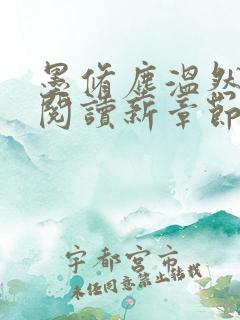 墨脩塵温然
閱讀新章節
宇都宮市
未经同意禁止转载